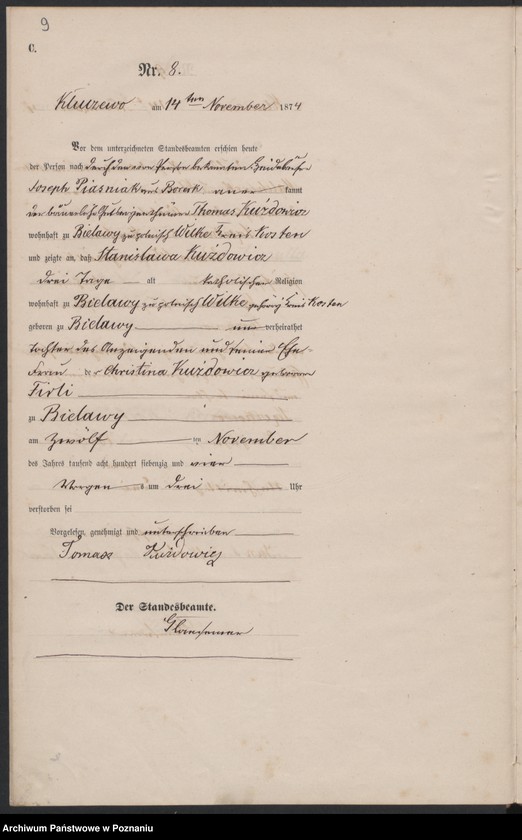 9
C.
Nr. 8.
Kluczewo am 14ten November 1874
Vor dem unterzeichneten Standesbeamten erschien heute
der Person nach durch den von Person bekannten
Joseph Piasniak aus Borek aner kannt
der Thomas Kużdowicz
wohnhaft zu Bielawy zu polnisch Wilke Kreis Kosten
und zeigte an, daß Stanislawa Kużdowicz
drei Tage alt katholischen Religion
wohnhaft zu Bielawy zu polnisch Wilke gehörig Kreis Kosten
geboren zu Bielawy un verheirathet
Tochter des Anzeigenden und seiner Ehe-
frau der Christina Kużdowicz geborene
Firli
zu Bielawy
am zwölf ten November
des Jahres tausend acht hundert siebenzig und vier
Morgen s um drei Uhr
verstorben sei
Vorgelesen, genehmigt und unterschrieben
Tomasz Kużdowicz
Der Standesbeamte.
Archiwum Państwowe w Poznaniu